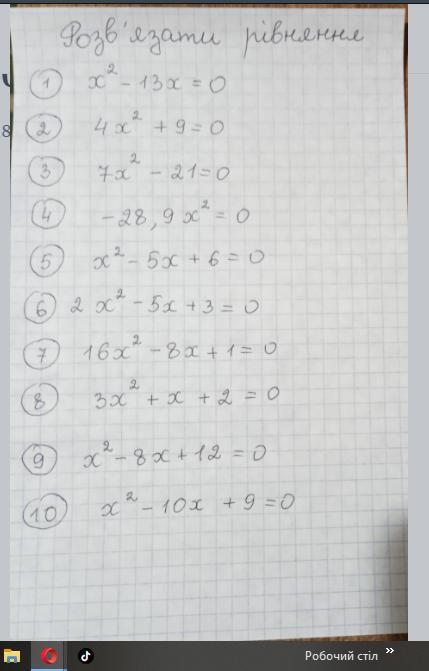 Розв'язати рівняння
1 x² - 13x = 0
2 4x² + 9 = 0
3 7x² - 21 = 0
4 -28,9x² = 0
5 x² - 5x + 6 = 0
6 2x² - 5x + 3 = 0
7 16x² - 8x + 1 = 0
8 3x² + x + 2 = 0
9 x² - 8x + 12 = 0
10 x² - 10x + 9 = 0
8
Робочий стіл »